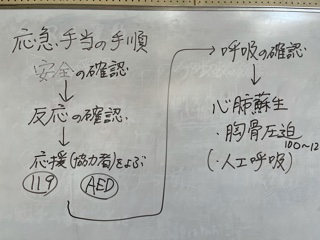 応急手当の手順
安全の確認
反応の確認
応援(協力者)をよぶ
119 AED
呼吸の確認
心肺蘇生
・胸骨圧迫
100~12
(・人工呼吸)